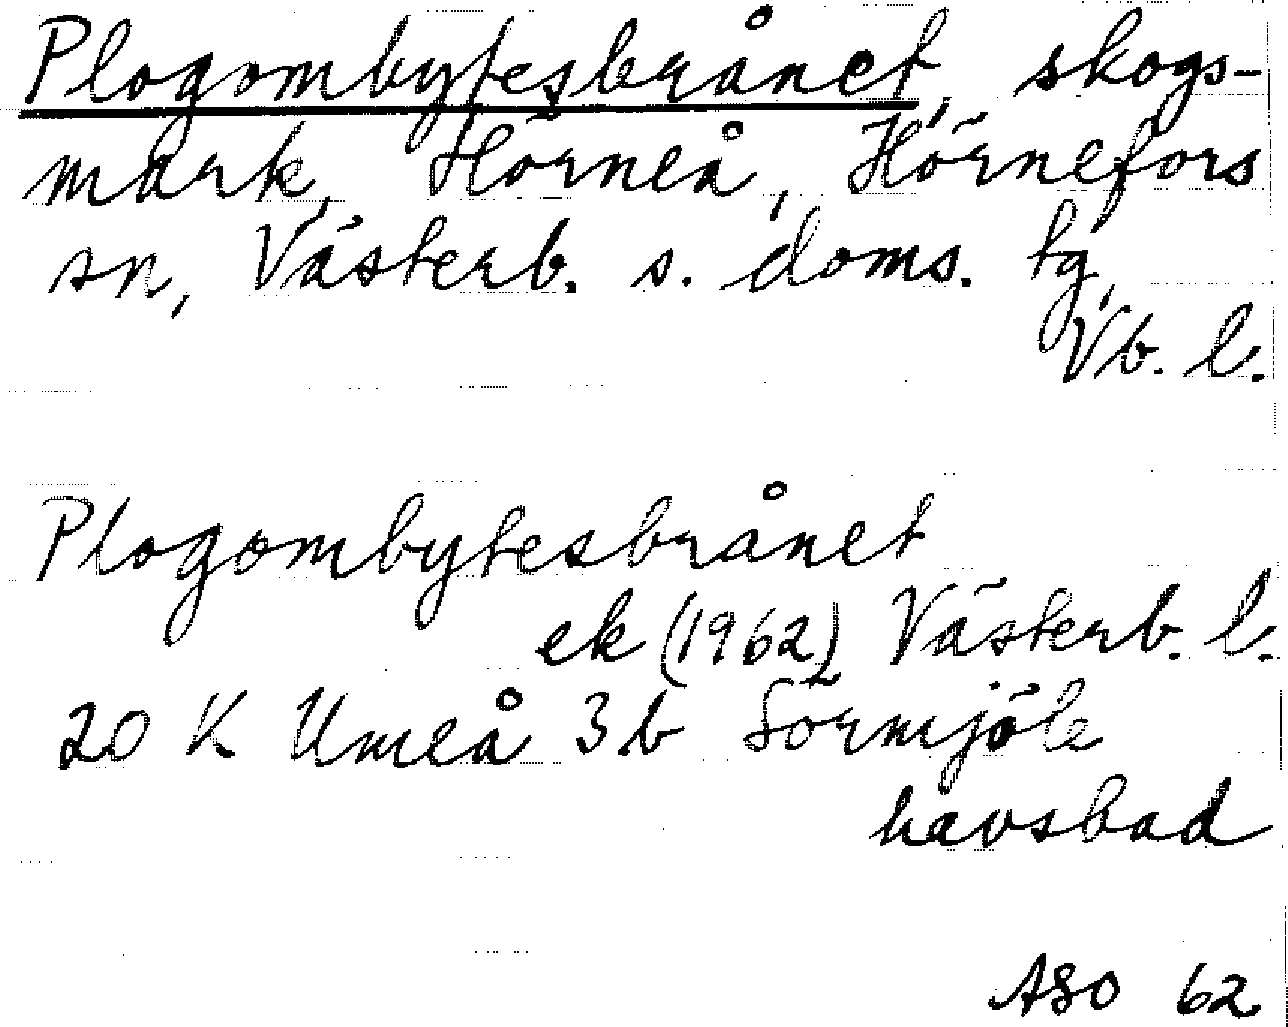 Plogombytesbrånet, skogs-
mark, Hörneå, Hörnefors
sn, Västerb. s. doms. tg,
Vb. l.
Plogombytesbrånet
ek (1962) Västerb. l.
20 K Umeå 3b Sörmjöle
havsbad
ASO 62